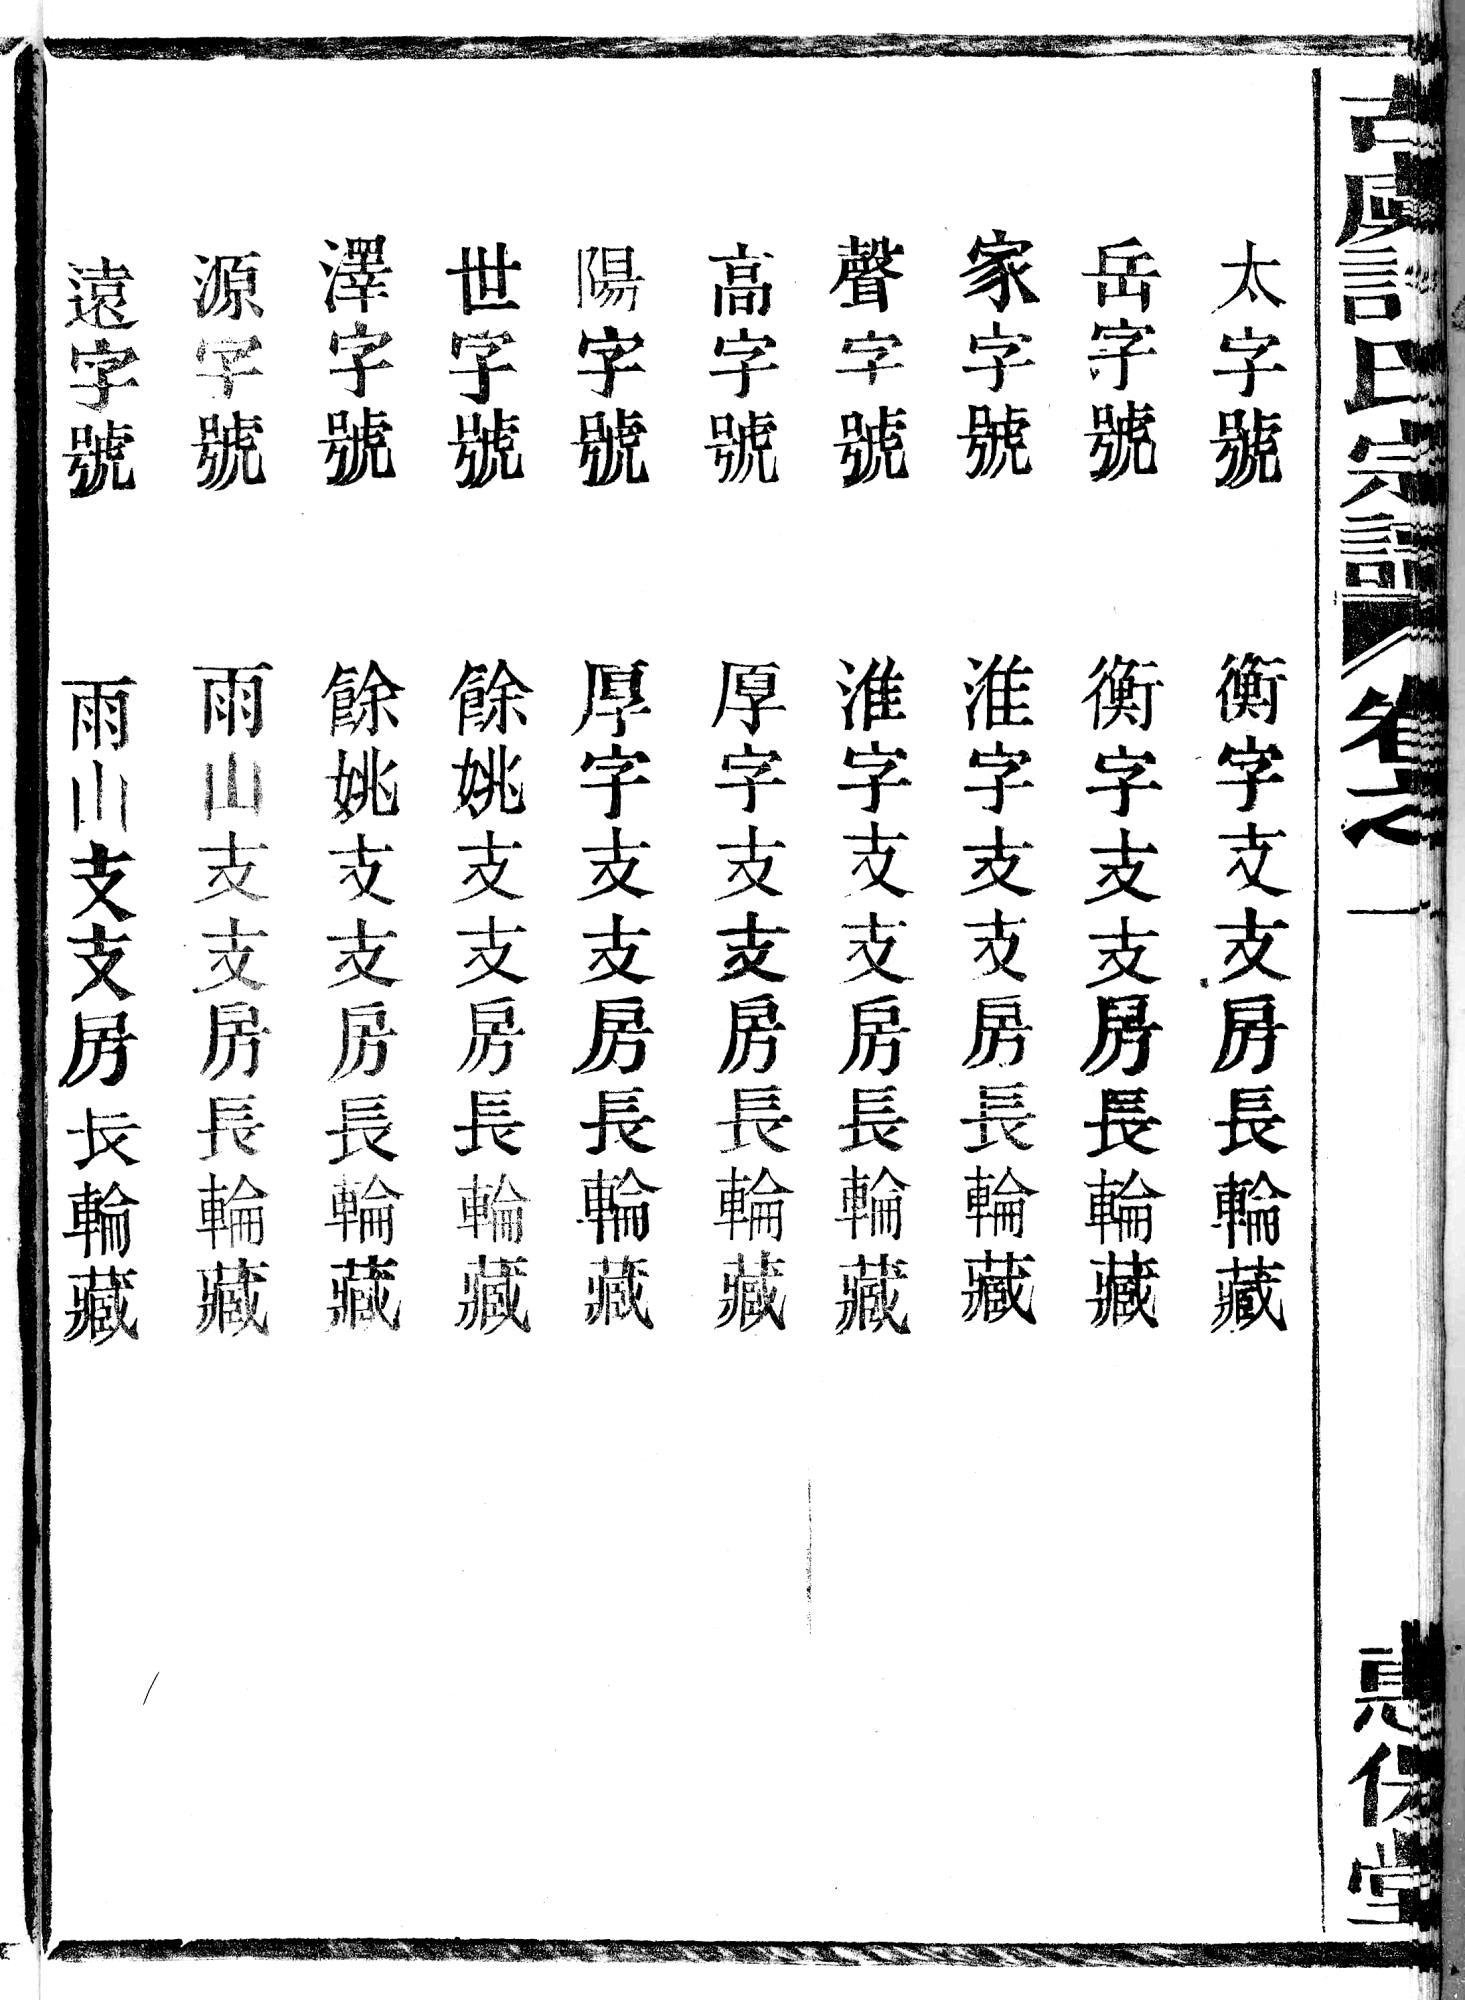 氏宗譜 卷之一
堂
太字號 衡字支支房長輪藏
岳字號 衡字支支房長輪藏
家字號 淮字支支房長輪藏
聲字號 淮字支支房長輪藏
高字號 厚字支支房長輪藏
陽字號 厚字支支房長輪藏
世字號 餘姚支支房長輪藏
澤字號 餘姚支支房長輪藏
源字號 雨山支支房長輪藏
遠字號 雨山支支房長輪藏